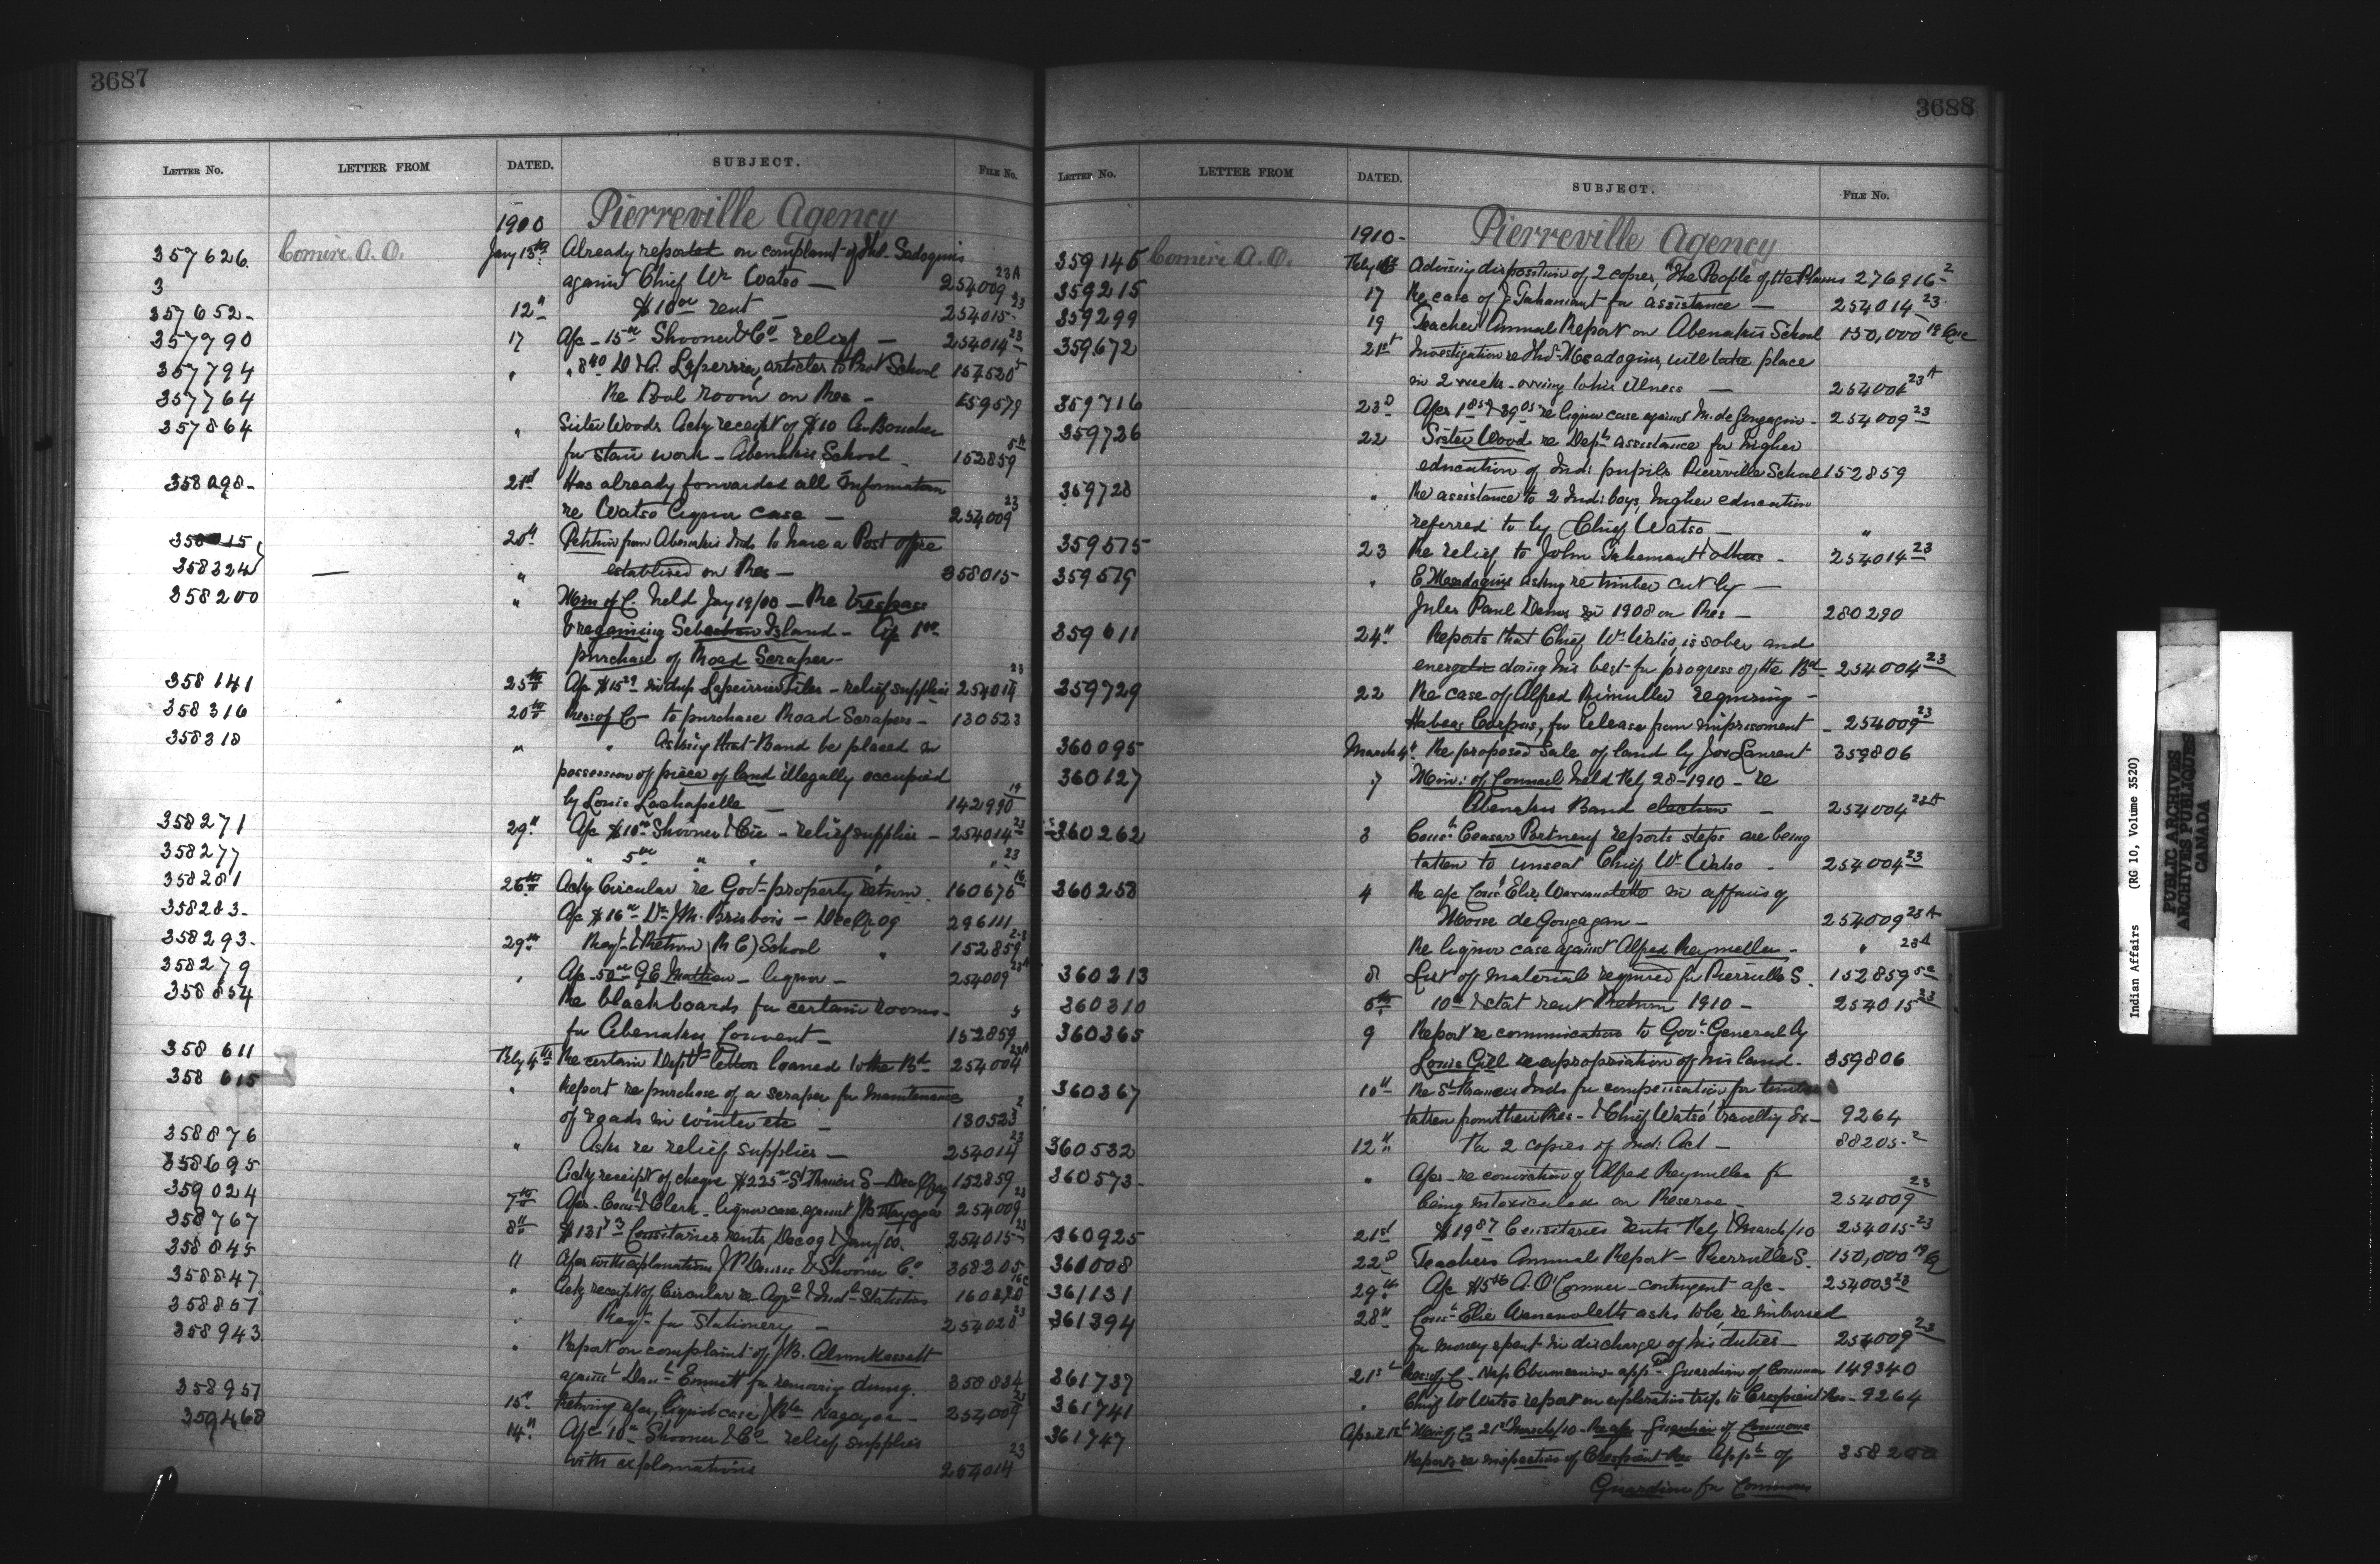 3687
LETTER NO. LETTER FROM DATED. SUBJECT. FILE NO.
1900 Pierreville Agency
357626 Comire A.O. Jany 15th Already reported on complaint of Thos.
3 against Chief Wm Watso — 254009 23A
357652 12" $10 00 rent 254015 23
357790 17 A/c 15 00 Shooner & Co relief — 254014 23
357794 " " 8 40 articles to Prot School 157520 5
357764 Re Pool room on Res — 159579
357864 " Sister Woods Ackg receipt of $10 A. Boucher
for stair work — Abenakis School 152859 5A
358098 21st Has already forwarded all Information
re Watso liquor case — 254009 23
358015 20" Petition from Abenakis Inds to have a Post office
358324 — " established on Res — 358015
358200 " Min of C. held Jany 19/00 — Re trespass
& regaining Island — A/c 1 00
purchase of Road Scraper —
358141 25th A/c $15 29 — relief supplies 254014 23
358316 20th Res: of C — to purchase Road Scrapers — 130523
358318 " " Asking that Band be placed in
possession of piece of land illegally occupied
by Louis Lachapelle — 142990 19
358271 29" A/c $10 00 Shooner & Cie — relief supplies — 254014 23
358277 " 5 00 " " " " 23
358281 26th Ackg Circular re Govt property return 160676 16
358283 A/c $16 00 Dr J.M. Brisbois — Dec Qr 09 296111
358293 29th Reqt & Return (R C) School " 152859 2-8
358279 " A/c 50 00 G E Mathieu — liquor — 254009 23A
358854 Re blackboards for certain rooms
for Abenakis Convent — 152859 5
358611 Feby 4th Re certain Deptl letters loaned to the Bd 254004 23A
358615 " Report re purchase of a scraper for Maintenance
of roads in winter etc — 130523 2
358876 " Asks re relief supplies — 254014 23
358695 Ackg receipt of cheque $225 00 St Francis S — Dec Q 152859
359024 7th A/cs — Const & Clerk — liquor case against 254009 23
358767 8th $131 73 Censitaires rents, Dec 09 & Jany/10. 254015 23
358845 11 A/cs with explanations & Shooner Co 358205
358847 " Ackg receipt of Circular re Agrl & Indl Statistics 160820 16C
358857 " Reqt for Stationery — 254028 23
358943 " Report on complaint of J.B.
against Danl Emmett for removing dung. 358884
358957 15" Retuning a/cs, liquor case 254009 23
359468 14" A/c 10 00 Shooner & Co relief supplies
with explanations 254014 23
3688
LETTER NO. LETTER FROM DATED. SUBJECT. FILE NO.
1910 — Pierreville Agency
359145 Comire A.O. Feby Advising disposition of 2 copies, "The People of the Plains 276916 2
359215 17 Re case of J. Tahamant for assistance — 254014 23
359299 19 Teacher Annual Report on Abenakis School 150,000 19
359672 21st Investigation re Thos will take place
in 2 weeks — owing to his illness — 254004 23A
359716 23d A/cs 1 85 & 39 05 re liquor case against M. de Gonzagan — 254009 23
359726 22 Sister Wood re Depts assistance for higher
" education of Ind: pupils Pierreville School 152859
359728 " Re assistance to 2 Ind: boys, higher education
referred to by Chief Watso — "
359575 23 Re relief to John Tahamant & others — 254014 23
359579 " E asking re timber cut by —
Jules Paul Denis in 1908 on Res — 280290
359611 24" Reports that Chief Wm Watso, is sober and
energetic doing his best for progress of the Bd — 254004 23
359729 22 Re case of Alfred requiring —
Habeas Corpus, for release from imprisonment — 254009 23
360095 March 4" Re proposed Sale of land by Jos Laurent 359806
360127 7 Min: of Council held Feby 28-1910 — re
Abenakis Band election — 254004 23A
360262 8 Const Ceasar Portneuf reports steps are being
taken to unseat Chief Wm Watso — 254004 23
360258 4 Re a/c Const Elie in affairs of
Moise de Gonzagan — 254009 23A
Re liquor case against Alfred — " 23A
360213 8 List of material required for Pierreville S. 152859 5C
360310 5th 10 00 & stat rent Return 1910 — 254015 23
360365 9 Report re communication to Govt General by
Louis Gill re apropriation of his land — 359806
360367 10" Re St Francis Inds for compensation for timber
taken from their Res — & Chief Watso' travellg Ex — 9264
360532 12" Re 2 copies of Ind: Act — 88205-2
360573 " A/cs — re conviction of Alfred for
being intoxicated on Reserve — 254009 23
360925 21st $19 87 Censitaires rents Feby & March/10 254015 23
361008 22d Teachers Annual Report — Pierreville S. 150,000 19
361131 29th A/c $5 56 A. O. Comire — contingent a/c — 254003 23
361394 28" Const Elie asks to be re imbursed
for money spent in discharge of his duties — 254009 23
361737 21st Res: of C. Nap appt Guardian of Common 149340
361741 " Chief W Watso report on exploration trip to Crespieul Res — 9264
361747 April 1st Min of C. 21st March/10 Guardian of Commons
Reports re inspection of Crespieul Res Appt of 358200
Guardian for Commons
Indian Affairs (RG 10, Volume 3520)
PUBLIC ARCHIVES
ARCHIVES PUBLIQUES
CANADA